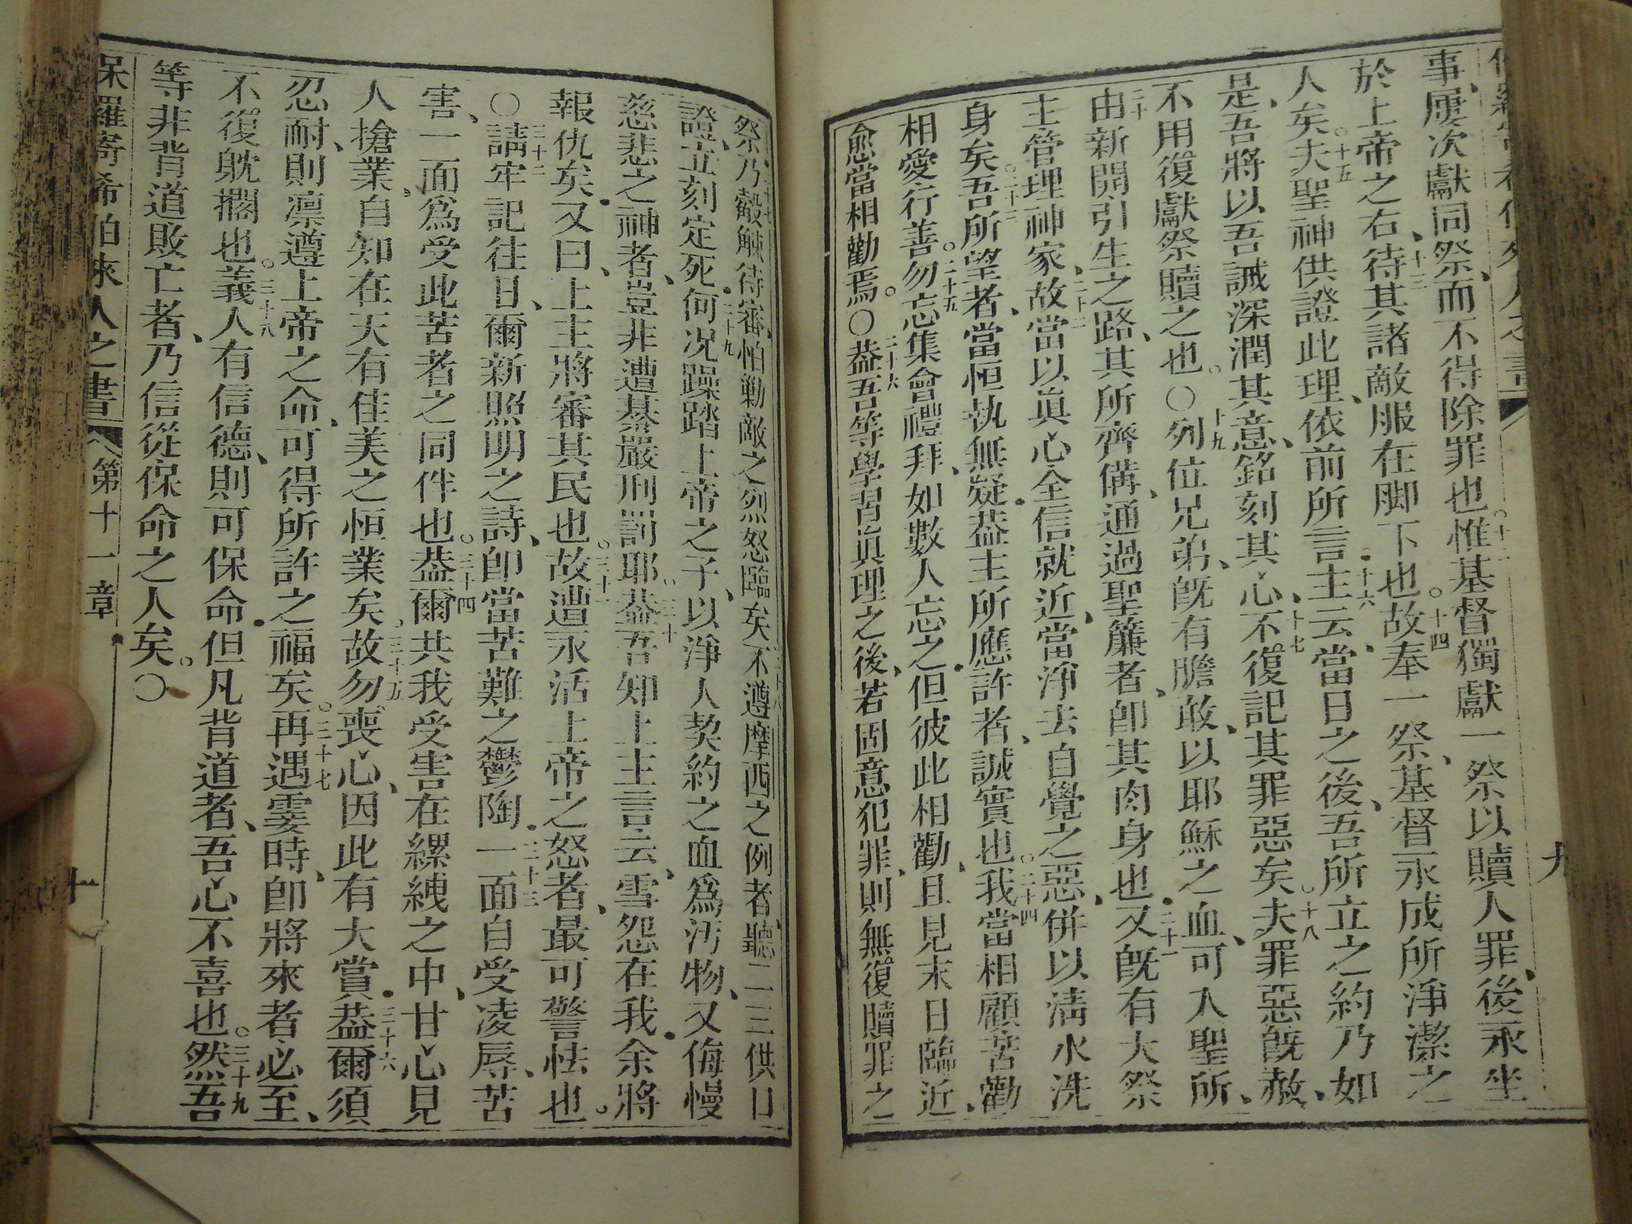 事、屢次獻同祭、而不得除罪也。十二惟基督獨獻一祭以贖人罪、後永坐
於上帝之右、十三待其諸敵服在脚下也。十四故奉一祭、基督永成所淨潔之
人矣。十五夫聖神供證此理、依前所言、十六主云、當日之後、吾所立之約乃如
是、吾將以吾誡深潤其意、銘刻其心、十七不復記其罪惡矣。十八夫罪惡既赦、
不用復獻祭贖之也。〇十九列位兄弟、既有膽敢、以耶穌之血、可入聖所、
二十由新開引生之路、其所齊備、通過聖簾者、卽其肉身也。二十一又既有大祭
主管理神家、二十二故當以眞心全信就近、當淨去自覺之惡、併以淸水洗
身矣。二十三吾所望者、當恒執無疑、蓋主所應許者、誠實也。二十四我當相顧苦勸
相愛行善。二十五勿忘集會禮拜、如數人忘之、但彼此相勸、且見末日臨近、
愈當相勸焉。〇二十六蓋吾等學習眞理之後、若固意犯罪、則無復贖罪之
祭、二十七乃觳觫待審、怕勦敵之烈怒臨矣。二十八不遵摩西之例者、聽二三供口
證、立刻定死、二十九何况躁踏上帝之子、以淨人契約之血爲汚物、又侮慢
慈悲之神者、豈非遭綦嚴刑罰耶。三十蓋吾知上主言云、雪怨在我、余將
報仇矣、又曰、上主將審其民也。三十一故遭永活上帝之怒者、最可警怯也。
〇三十二請牢記往日、爾新照明之詩、卽當苦難之鬱陶、三十三一面自受凌辱、苦
害、一面爲受此苦者之同伴也。三十四蓋爾共我受害在縲絏之中、甘心見
人搶業、自知在天有佳美之恒業矣。三十五故勿喪心、因此有大賞、三十六蓋爾須
忍耐、則凛遵上帝之命、可得所許之福矣。三十七再遇霎時、卽將來者必至、
不復躭擱也。三十八義人有信德、則可保命、但凡背道者、吾心不喜也。三十九然吾
等非背道敗亡者、乃信從保命之人矣。〇
保羅寄希伯來人之書 第十一章 十
九